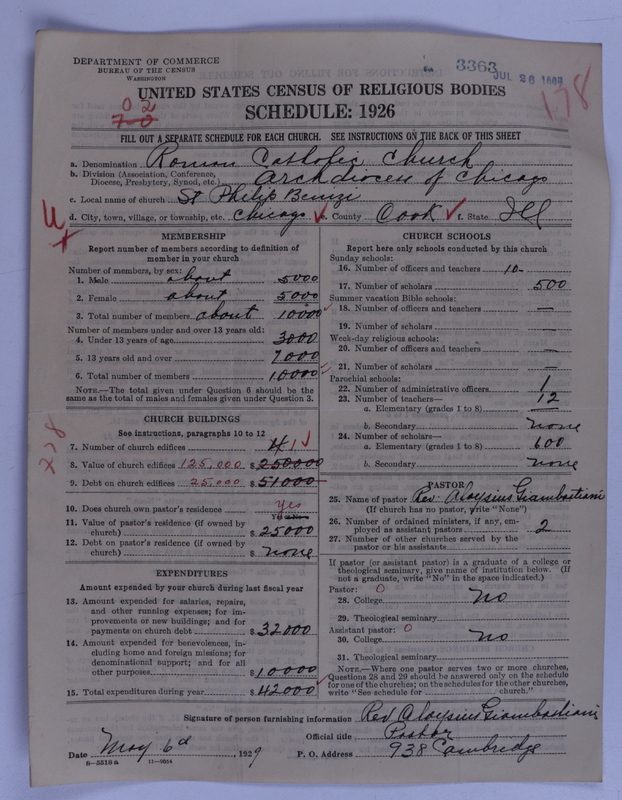 DEPARTMENT OF COMMERCE
BUREAU OF THE CENSUS
WASHINGTON
3363
JUL 26
178
UNITED STATES CENSUS OF RELIGIOUS BODIES
SCHEDULE: 1926
0 2
7-0
FILL OUT A SEPARATE SCHEDULE FOR EACH CHURCH. SEE INSTRUCTIONS ON THE BACK OF THIS SHEET
a. Denomination Roman Catholic Church
b. Division (Association, Conference, Diocese, Presbytery, Synod, etc.) Archdiocess of Chicago
c. Local name of church St Philip Benizi
d. City, town, village, or township, etc. Chicago e. County Cook f. State Ill
MEMBERSHIP
Report number of members according to definition of
member in your church
Number of members, by sex:
1. Male about 5000
2. Female about 5000
3. Total number of members about 10000
Number of members under and over 13 years old:
4. Under 13 years of age 3000
5. 13 years old and over 7000
6. Total number of members 10000
NOTE.—The total given under Question 6 should be
the same as the total of males and females given under Question 3.
CHURCH BUILDINGS
See instructions, paragraphs 10 to 12
278
7. Number of church edifices 4 1
8. Value of church edifices 125,000 $ 250000
9. Debt on church edifices 25,000 $ 51000
10. Does church own pastor's residence yes
11. Value of pastor's residence (if owned by
church) $ 25000
12. Debt on pastor's residence (if owned by
church) $ none
EXPENDITURES
Amount expended by your church during last fiscal year
13. Amount expended for salaries, repairs,
and other running expenses; for im-
provements or new buildings; and for
payments on church debt $ 32000
14. Amount expended for benevolences, in-
cluding home and foreign missions; for
denominational support; and for all
other purposes $ 10000
15. Total expenditures during year $ 42000
CHURCH SCHOOLS
Report here only schools conducted by this church
Sunday schools:
16. Number of officers and teachers 10
17. Number of scholars 500
Summer vacation Bible schools:
18. Number of officers and teachers —
19. Number of scholars —
Week-day religious schools:
20. Number of officers and teachers —
21. Number of scholars —
Parochial schools:
22. Number of administrative officers 1
23. Number of teachers— 12
a. Elementary (grades 1 to 8)
b. Secondary none
24. Number of scholars—
a. Elementary (grades 1 to 8) 600
b. Secondary none
PASTOR
25. Name of pastor Rev. Aloysius Giambastiani
(If church has no pastor, write "None")
26. Number of ordained ministers, if any, em-
ployed as assistant pastors 2
27. Number of other churches served by the
pastor or his assistants
If pastor (or assistant pastor) is a graduate of a college or
theological seminary, give name of institution below. (If
not a graduate, write "No" in the space indicated.)
Pastor: 0
28. College No
29. Theological seminary
Assistant pastor: 0
30. College No
31. Theological seminary
NOTE.—Where one pastor serves two or more churches,
Questions 28 and 29 should be answered only on the schedule
for one of the churches; on the schedules for the other churches,
write "See schedule for church."
Signature of person furnishing information Rev Aloysius Giambastiani
Official title Pastor
Date May 6th 1929 P. O. Address 938 Cambridge
8—5519 a 11—9564